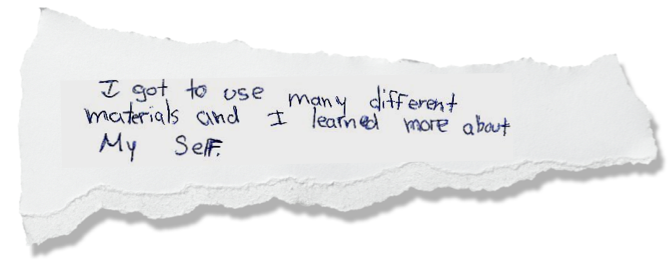 I got to use many different
materials and I learned more about
My Self.